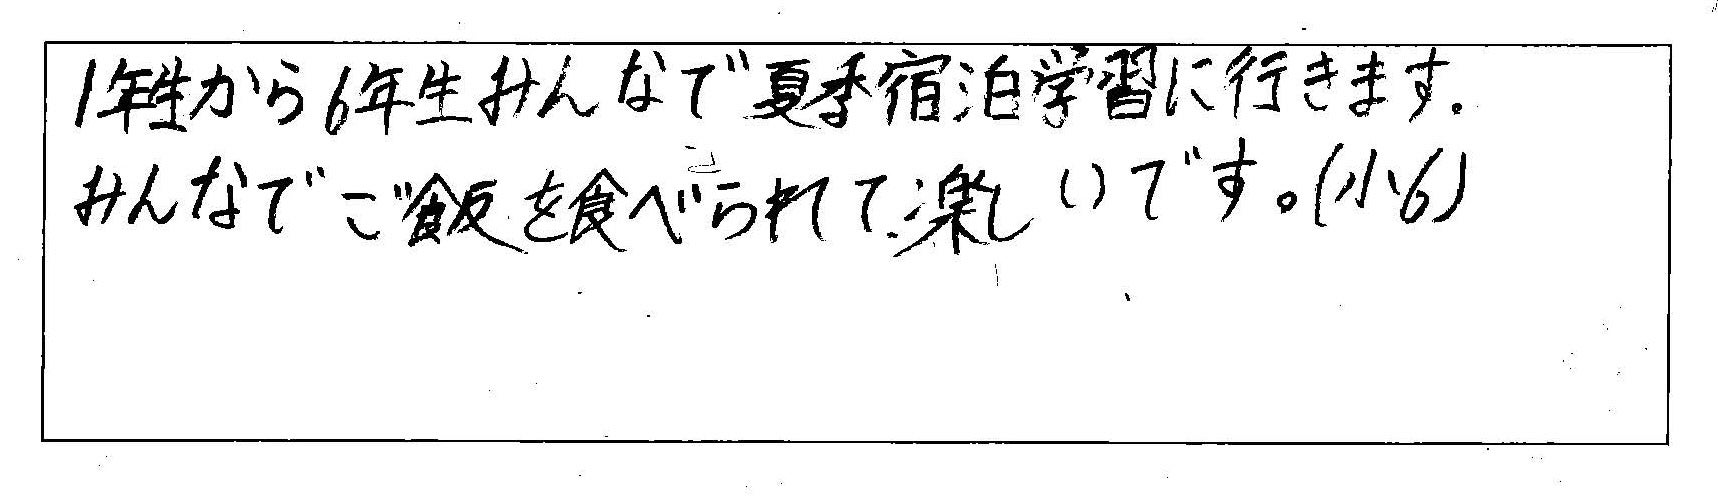 1年生から6年生みんなで夏季宿泊学習に行きます.
みんなでご飯を食べられて楽しいです。(小6)